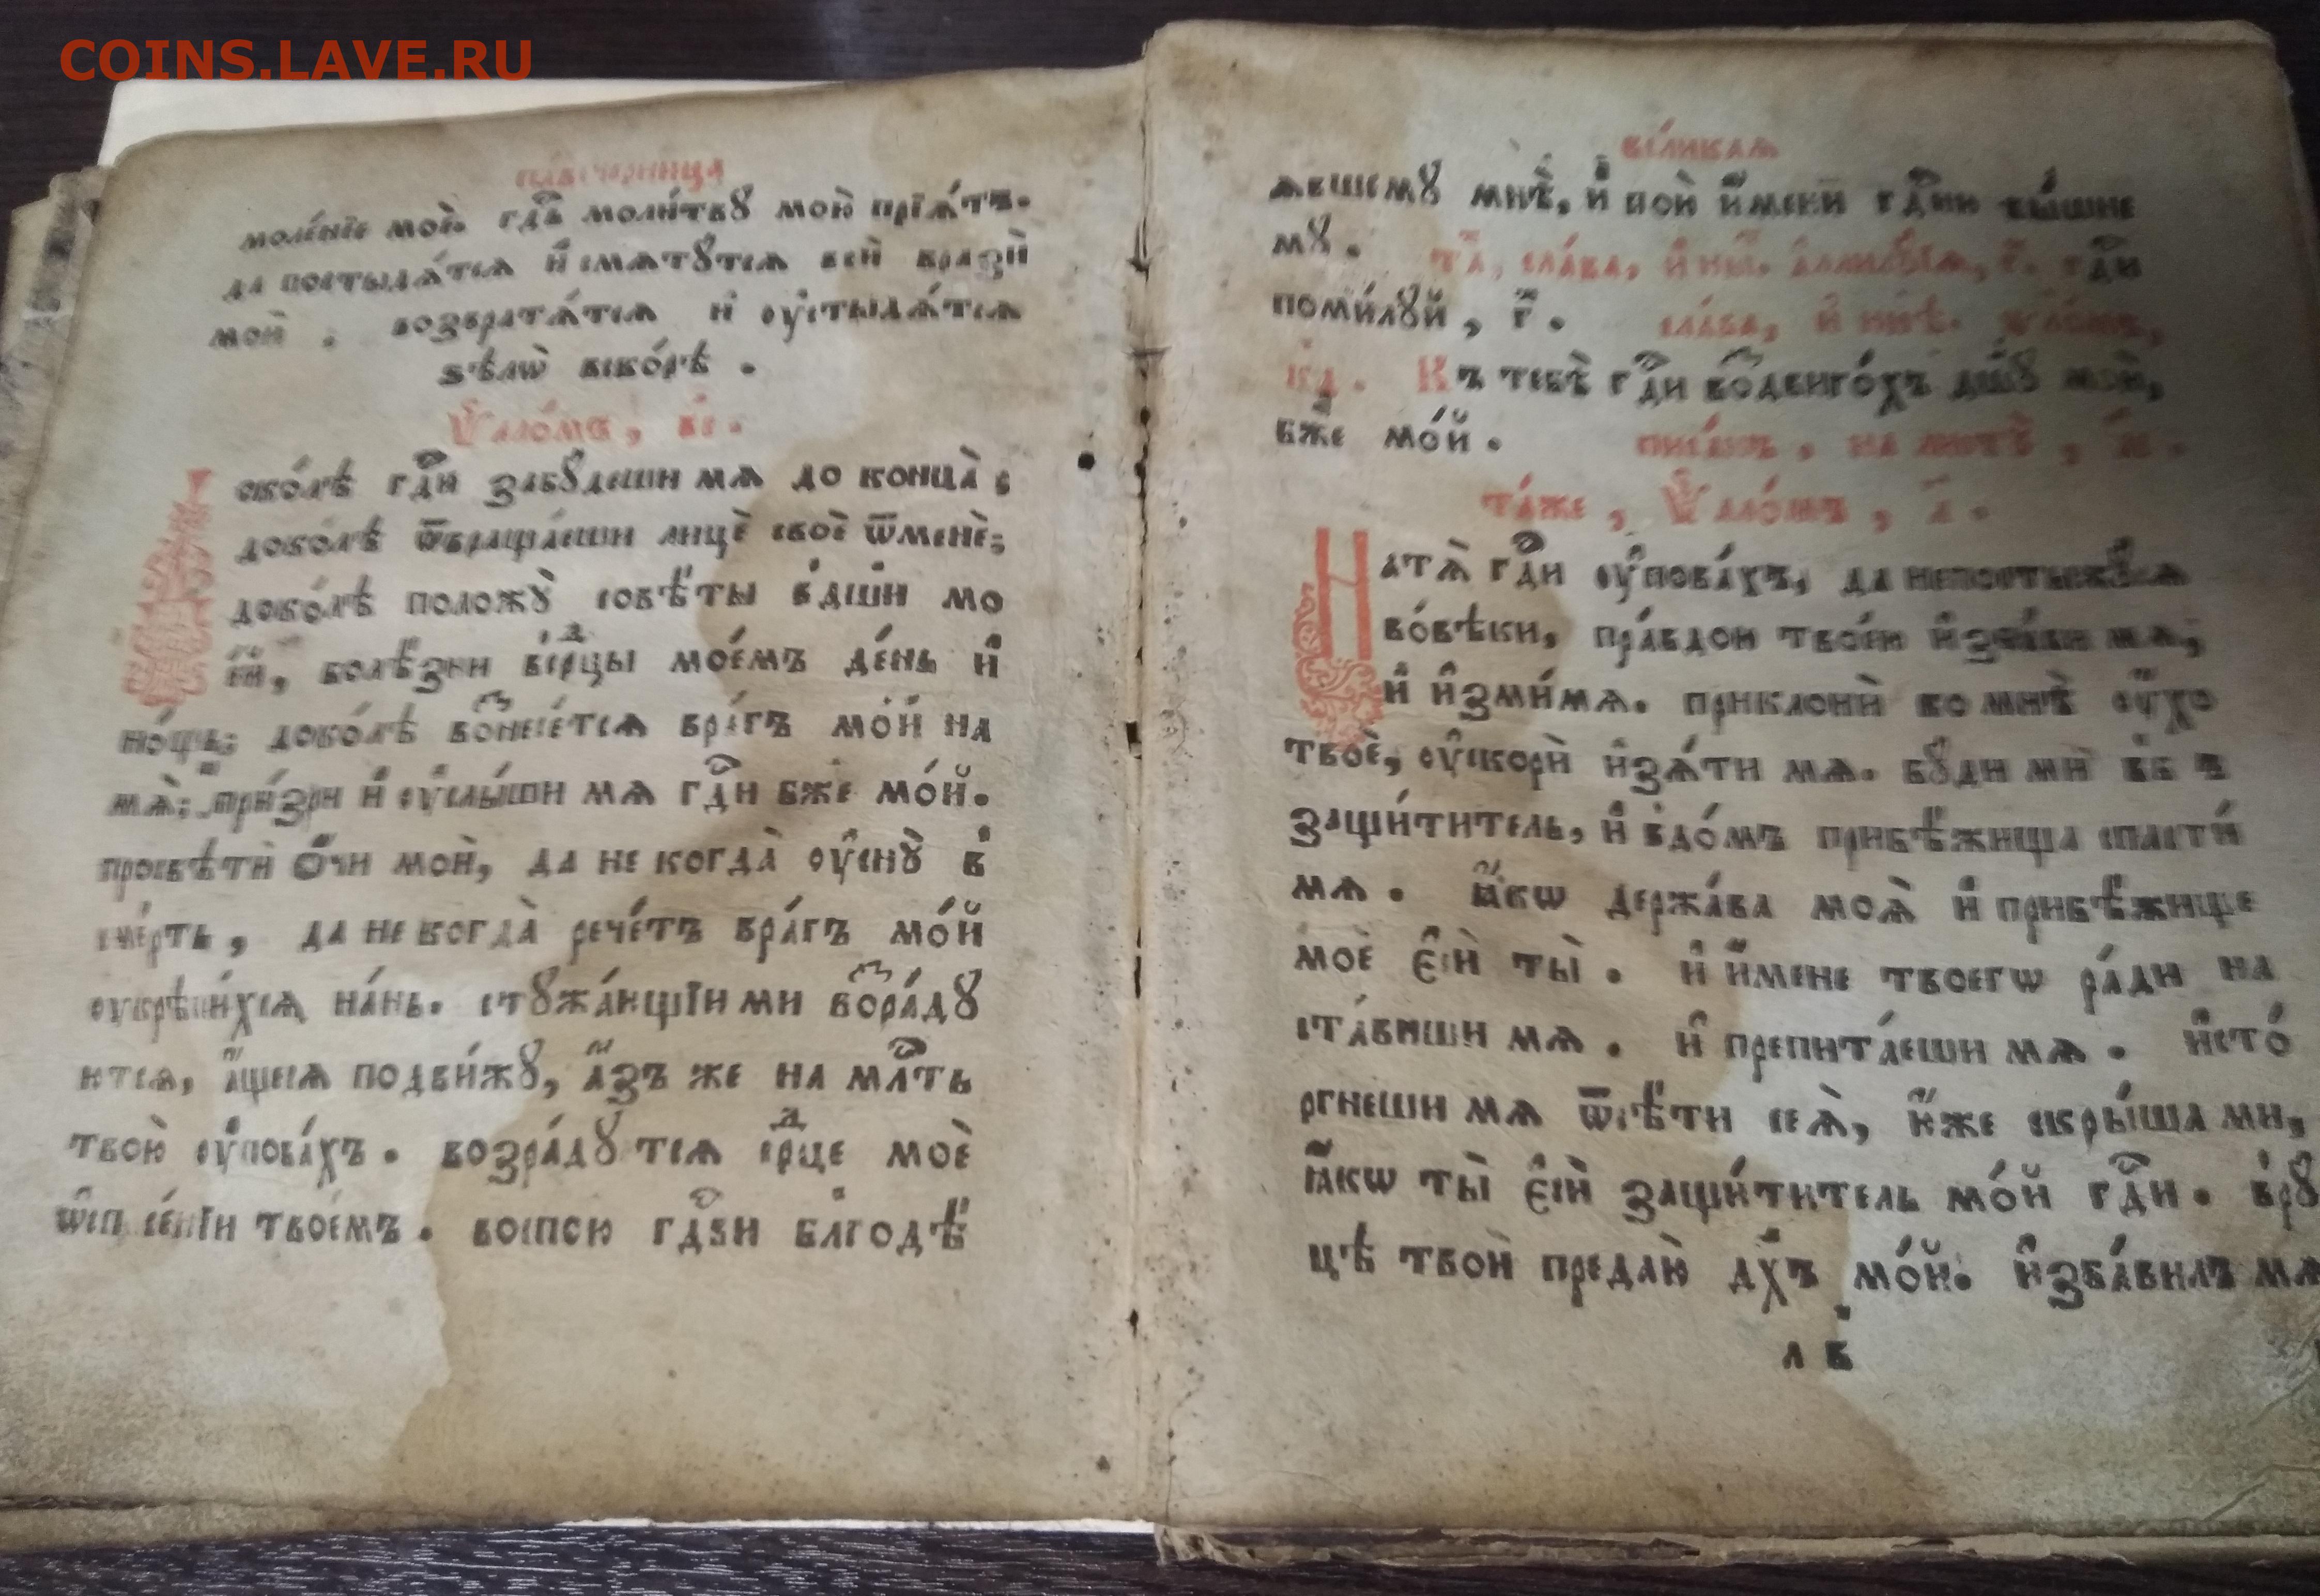 COINS.LAVE.RU
павечерница
моле́нїе моѐ. гдⷭ҇ь моли́твꙋ мою̀ прїѧ́тъ.
да постыдѧ́тсѧ и҆ смѧтꙋ́тсѧ всѝ вразѝ
моѝ. возвратѧ́тсѧ и҆ ᲂу҆стыдѧ́тсѧ
ѕѣлѡ̀ вско́рѣ.
Ѱало́мъ, в҃і.
око́лѣ гдⷭ҇и забꙋ́деши мѧ до конца̀;
доко́лѣ ѿвраща́еши лицѐ своѐ ѿменѐ;
доко́лѣ положꙋ̀ совѣ́ты вдш҃и мо
е́й, болѣ́зни всрⷣцы мое́мъ де́нь и҆
но́щь; доко́лѣ воⷥнесе́тсѧ вра́гъ мо́й на
мѧ̀; при́зри и҆ ᲂу҆слы́ши мѧ гдⷭ҇и бж҃е мо́й.
просвѣтѝ ѻ҆́чи моѝ, да не когда̀ ᲂу҆снꙋ̀ в
сме́рть, да не когда̀ рече́тъ вра́гъ мо́й
ᲂукрѣпи́хсѧ на́нь. стꙋжа́ющїи ми воⷥра́дꙋ
ютсѧ, а҆́щесѧ подви́жꙋ, а҆́зъ же на млⷭ҇ть
твою̀ ᲂу҆пова́хъ. возра́дꙋтсѧ срⷣце моѐ
ѡ҆сп сенїи твое́мъ. воспою гдⷭ҇ви бл҃годѣ́
вели́каѧ
ѧвшемꙋ мнѣ̀, и҆ пою̀ и҆́мени гдⷭ҇ню вы́шне
мꙋ. та́, сла́ва, и҆ ны́. а҆ллилꙋ́їѧ, г҃. гдⷭ҇и
поми́лꙋй, г҃. сла́ва, и҆ ннѣ. ѱало́мъ,
к҃д. Къ тебѣ̀ гдⷭ҇и воⷥдвиго́хъ дш҃ꙋ мою̀,
бж҃е мо́й. писа́нъ, на листѣ̀, и҃.
та́же, Ѱало́мъ, л҃.
Натѧ̀ гдⷭ҇и ᲂу҆пова́хъ, да непостыжꙋ́сѧ
во́вѣки, пра́вдою твое́ю и҆зба́ви мѧ,
и҆ и҆зми́мѧ. приклонѝ ко мнѣ̀ ᲂу҆́хо
твоѐ, ᲂу҆скорѝ и҆зѧ́ти мѧ. бꙋ́ди мѝ вб ъ
защи́титель, и҆ вдо́мъ прибѣ́жища спасти́
мѧ. ꙗ҆́кѡ держа́ва моѧ̀ и҆ прибѣ́жище
моѐ є҆сѝ ты̀. и҆ и҆́мене твоегѡ ра́ди на
ста́виши мѧ. и҆ препита́еши мѧ. и҆сто́
ргнеши мѧ ѿсѣ́ти сеѧ̀, ю҆́же скры́ша ми,
ꙗ҆́кѡ ты̀ є҆сѝ защи́титель мо́й гдⷭ҇и. врꙋ
цѣ твоѝ предаю̀ дх҃ъ мо́й. и҆зба́вилъ мѧ
л в